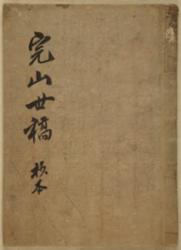 完山世稿
板本